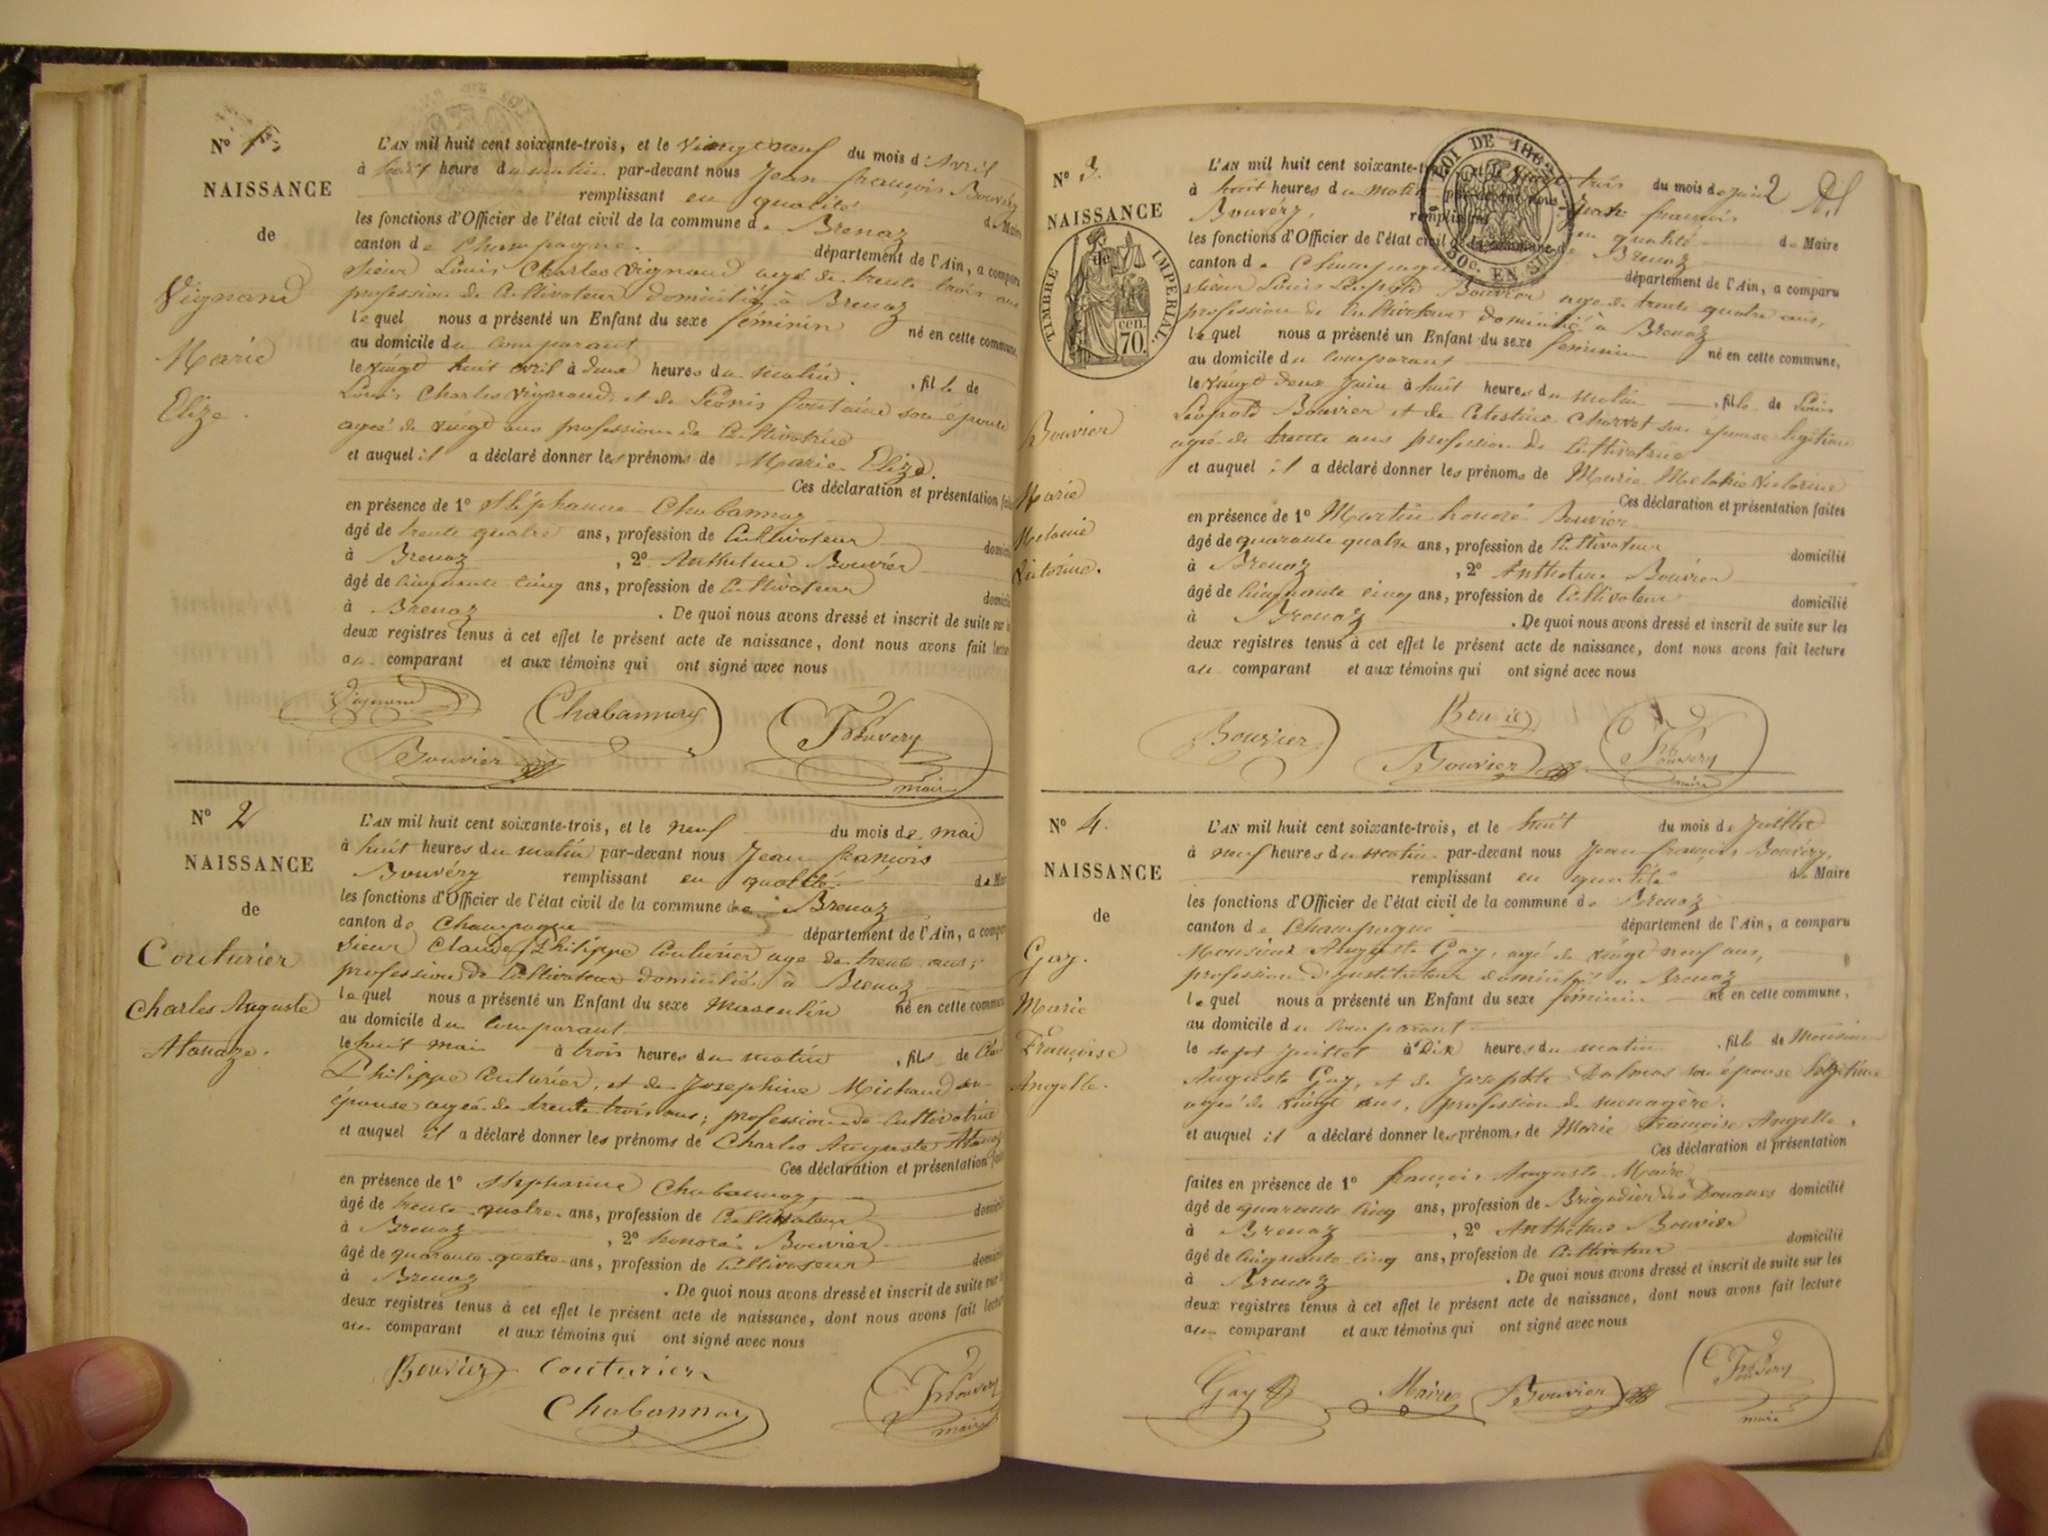 N° 1.
NAISSANCE
de
Vignand
Marie
Elize.
L'AN mil huit cent soixante-trois, et le vingt neuf du mois d'Avril
à huit heure du matin par-devant nous Jean françois Bouvéry
remplissant en qualité de Maire
les fonctions d'Officier de l'état civil de la commune de Brenaz
canton de Champagne. département de l'Ain, a comparu
Sieur Louis Charles Vignand agé de trente trois ans
profession de Cultivateur domicilié à Brenaz
lequel nous a présenté un Enfant du sexe féminin né en cette commune,
au domicile du comparant
le vingt huit avril à deux heures du matin. , fille de
Louis Charles Vignand et de fontaine son épouse
ageé de vingt ans profession de Cultivatrice
et auquel il a déclaré donner les prénoms de Marie Elize.
Ces déclaration et présentation faites
en présence de 1° Stéphanne Chabannaz
âgé de trente quatre ans, profession de Cultivateur domicilié
à Brenaz , 2° Anthelme Bouvier
âgé de cinquante cinq ans, profession de Cultivateur domicilié
à Brenaz . De quoi nous avons dressé et inscrit de suite sur les
deux registres tenus à cet effet le présent acte de naissance, dont nous avons fait lecture
au comparant et aux témoins qui ont signé avec nous
Vignand Chabannaz
Bouvier JFBouvery
maire
N° 2
NAISSANCE
de
Couturier
Charles Auguste
Atanaze.
L'AN mil huit cent soixante-trois, et le neuf du mois de mai
à huit heures du matin par-devant nous Jean françois
Bouvéry remplissant en qualité de Maire
les fonctions d'Officier de l'état civil de la commune de Brenaz
canton de Champagne département de l'Ain, a comparu
Sieur Claude Philippe Couturier age de trente ans;
profession de Cultivateur domicilié à Brenaz
lequel nous a présenté un Enfant du sexe Masculin né en cette commune
au domicile du comparant
le huit mai à trois heures du matin , fils de
Philippe Couturier, et de Josephine Michaud son
épouse ageé de trente trois ans; profession de cultivatrice
et auquel il a déclaré donner les prénoms de Charles Auguste Atanaz
Ces déclaration et présentation faites
en présence de 1° Stephanne Chabannaz
âgé de trente quatre ans, profession de Cultivateur domicilié
à Brenaz , 2° honoré Bouvier
âgé de quarante quatre ans, profession de Cultivateur domicilié
à Brenaz . De quoi nous avons dressé et inscrit de suite sur les
deux registres tenus à cet effet le présent acte de naissance, dont nous avons fait lecture
au comparant et aux témoins qui ont signé avec nous
Bouvier Couturier
Chabannaz JFBouvery
maire
N° 3.
NAISSANCE
de
TIMBRE IMPERIAL.
cen. 70.
LOI DE 1862
50c. EN SUS
2
Bouvier
Marie
Melanie
Victorine.
L'AN mil huit cent soixante-trois, et le vingt trois du mois de Juin
à huit heures du matin par-devant nous Jean françois
Bouvéry, remplissant en qualité de Maire
les fonctions d'Officier de l'état civil de la commune de Brenaz
canton de Champagne département de l'Ain, a comparu
Sieur Louis Léopold Bouvier age de trente quatre ans,
profession de Cultivateur domicilié à Brenaz
lequel nous a présenté un Enfant du sexe feminin né en cette commune,
au domicile du comparant
le vingt deux Juin à huit heures du matin , fille de Louis
Léopold Bouvier et de Celestine Charvet son épouse legitime
ageé de trente ans profession de Cultivatrice
et auquel il a déclaré donner les prénoms de Marie Melanie Victorine
Ces déclaration et présentation faites
en présence de 1° Martin honoré Bouvier
âgé de quarante quatre ans, profession de Cultivateur domicilié
à Brenaz , 2° Anthelme Bouvier
âgé de cinquante cinq ans, profession de Cultivateur domicilié
à Brenaz . De quoi nous avons dressé et inscrit de suite sur les
deux registres tenus à cet effet le présent acte de naissance, dont nous avons fait lecture
au comparant et aux témoins qui ont signé avec nous
Bouvier Bouvier
Bouvier JFBouvery
maire
N° 4.
NAISSANCE
de
Gay.
Marie
Françoise
Angelle.
L'AN mil huit cent soixante-trois, et le huit du mois de Juillet
à neuf heures du matin par-devant nous Jean françois Bouvéry,
remplissant en qualité de Maire
les fonctions d'Officier de l'état civil de la commune de Brenaz
canton de Champagne département de l'Ain, a comparu
Monsieur Auguste Gay, agé de vingt neuf ans,
profession d'Instituteur domicilié à Brenaz
lequel nous a présenté un Enfant du sexe féminin né en cette commune,
au domicile du comparant
le sept Juillet à Dix heures du matin , fille de Monsieur
Auguste Gay, et de Josephte Dalmas son épouse legitime
ageé de vingt ans, profession de menagère.
et auquel il a déclaré donner les prénoms de Marie Françoise Angelle.
Ces déclaration et présentation
faites en présence de 1° françois Auguste Maire
âgé de quarante cinq ans, profession de Brigadier des Douanes domicilié
à Brenaz , 2° Anthelme Bouvier
âgé de cinquante cinq ans, profession de Cultivateur domicilié
à Brenaz . De quoi nous avons dressé et inscrit de suite sur les
deux registres tenus à cet effet le présent acte de naissance, dont nous avons fait lecture
au comparant et aux témoins qui ont signé avec nous
Gay Maire Bouvier JFBouvery
maire